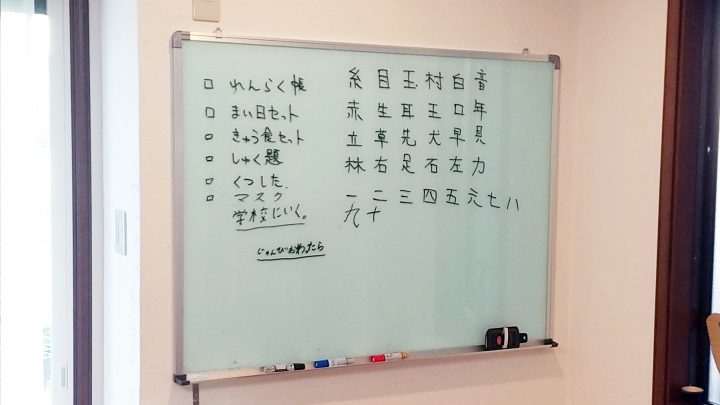 □ れんらく帳
□ まい日セット
□ きゅう食セット
□ しゅく題
□ くつした.
□ マスク
学校にいく。
じゅんびおわったら
糸 目 玉 村 白 音
赤 生 耳 王 口 年
立 草 先 犬 早 見
林 右 足 石 左 力
一 二 三 四 五 六 七 八
九 十